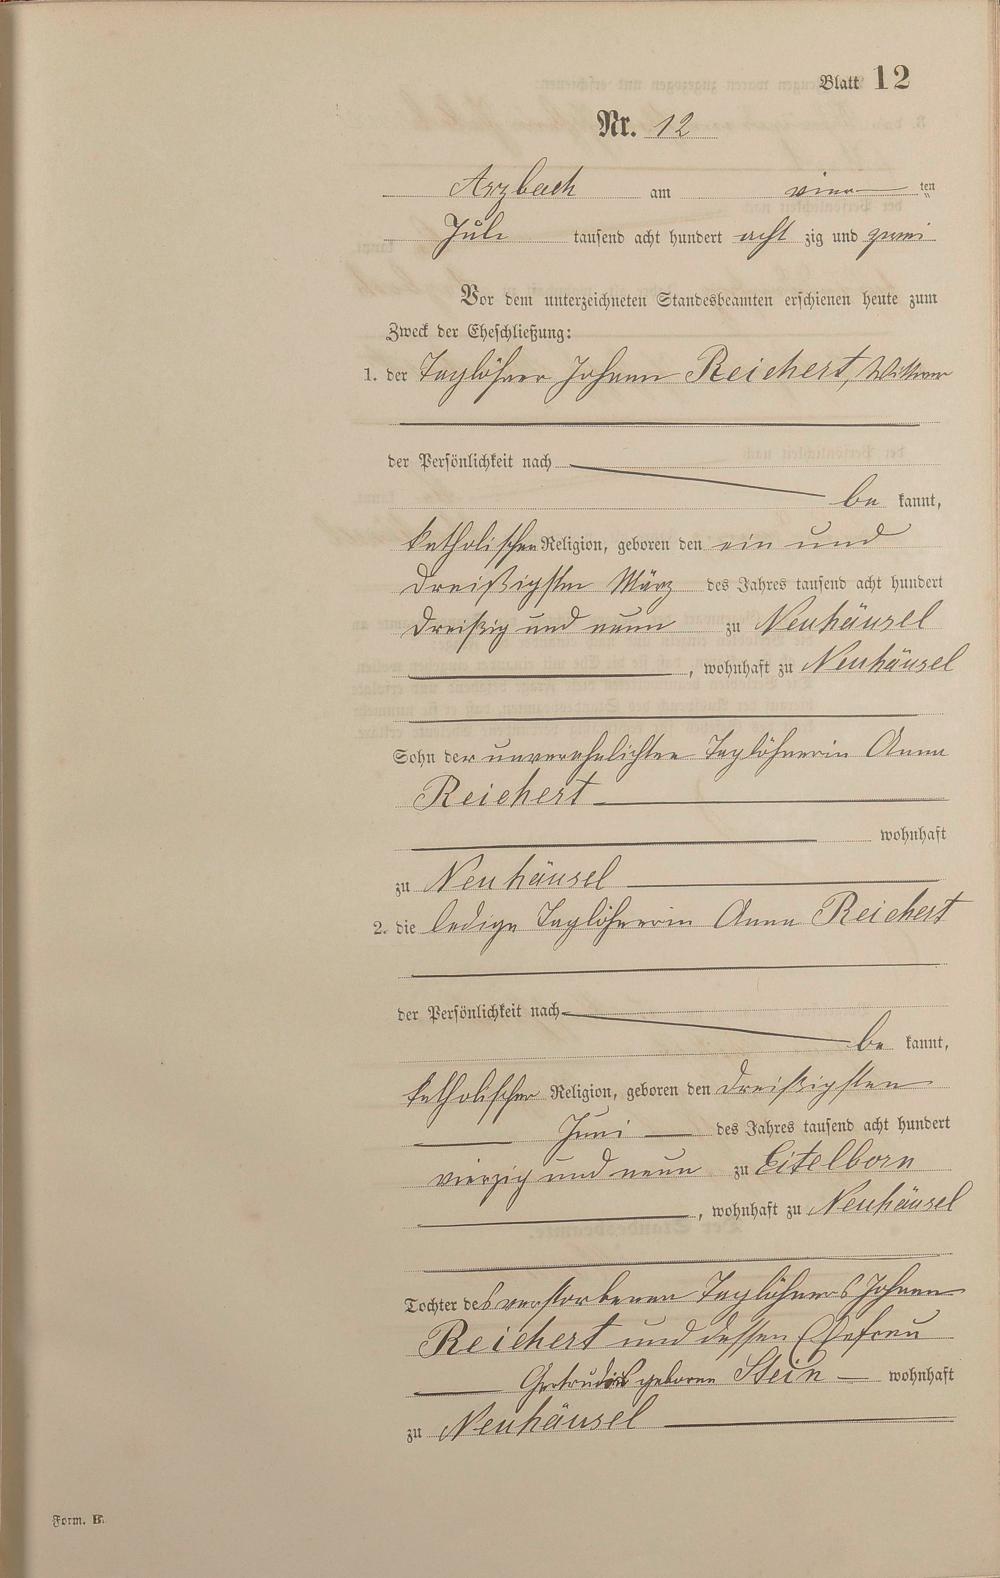 Blatt 12
Nr. 12
Arzbach am vier ten
Juli tausend acht hundert acht zig und zwei
Vor dem unterzeichneten Standesbeamten erschienen heute zum
Zweck der Eheschließung:
1. der Taglöhner Johann Reichert, Wittwer
der Persönlichkeit nach
be kannt,
katholischen Religion, geboren den ein und
dreißigsten März des Jahres tausend acht hundert
dreißig und neun zu Neuhäusel
, wohnhaft zu Neuhäusel
Sohn der unverehelichten Taglöhnerin Anna
Reichert
wohnhaft
zu Neuhäusel
2. die ledige Taglöhnerin Anna Reichert
der Persönlichkeit nach
be kannt,
katholischer Religion, geboren den dreißigsten
Juni des Jahres tausend acht hundert
vierzig und neun zu Eitelborn
, wohnhaft zu Neuhäusel
Tochter des verstorbenen Taglöhners Johann
Reichert und dessen Ehefrau
geborene Stein wohnhaft
zu Neuhäusel
Form. B.